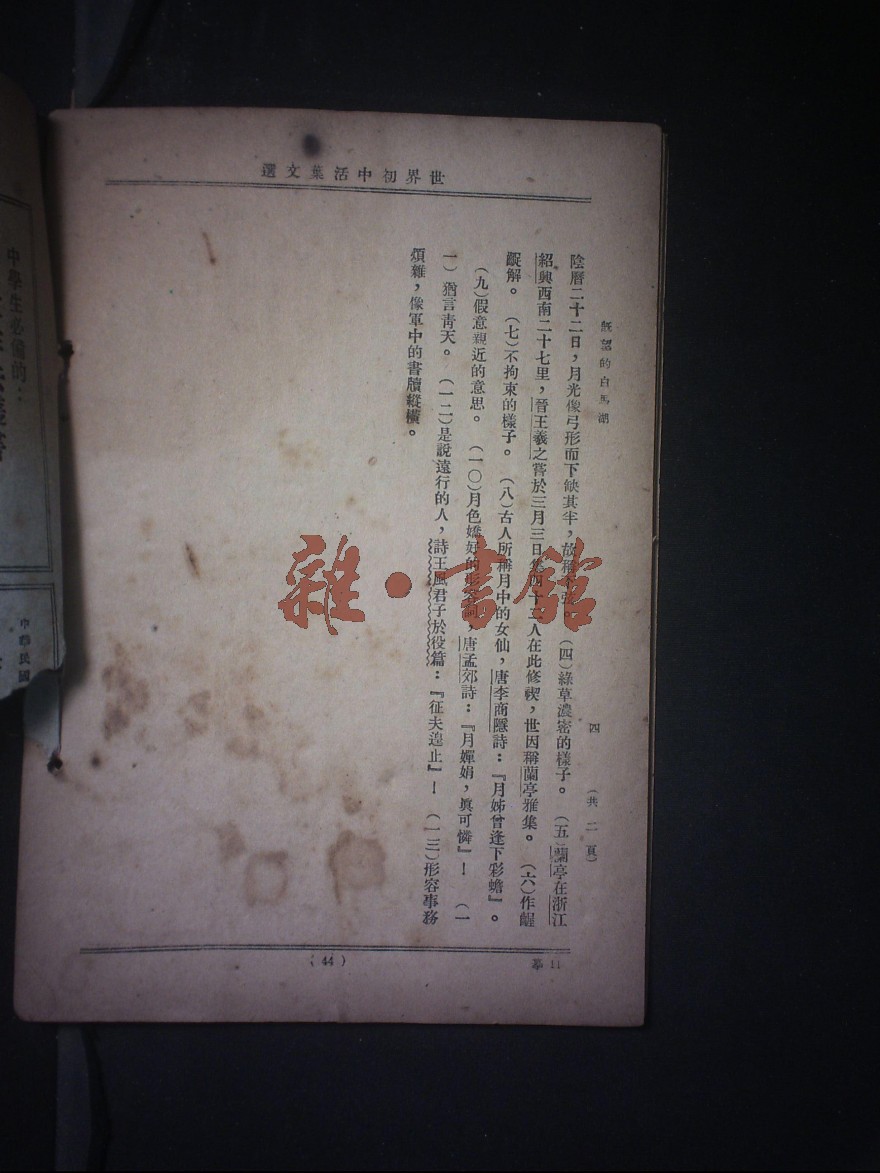 世界初中活葉文選
既望的白馬湖
四
(共二頁)
陰曆二十二日，月光像弓形而下缺其半，故稱下弦。 (四)綠草濃密的樣子。 (五)蘭亭在浙江
紹興西南二十七里，晉王羲之嘗於三月三日集四十二人在此修禊，世因稱蘭亭雅集。 (六)作齷
齪解。 (七)不拘束的樣子。 (八)古人所稱月中的女仙，唐李商隱詩：『月姊曾逢下彩蟾』。
(九)假意親近的意思。 (一〇)月色嬌好的，唐孟郊詩：『月嬋娟，眞可憐』！ (一
一)猶言青天。 (一二)是說遠行的人，詩王風君子於役篇：『征夫遑止』！ (一三)形容事務
煩雜，像軍中的書牘縱橫。
(44)
11
雜·書館
中學生必備的：
中華民國